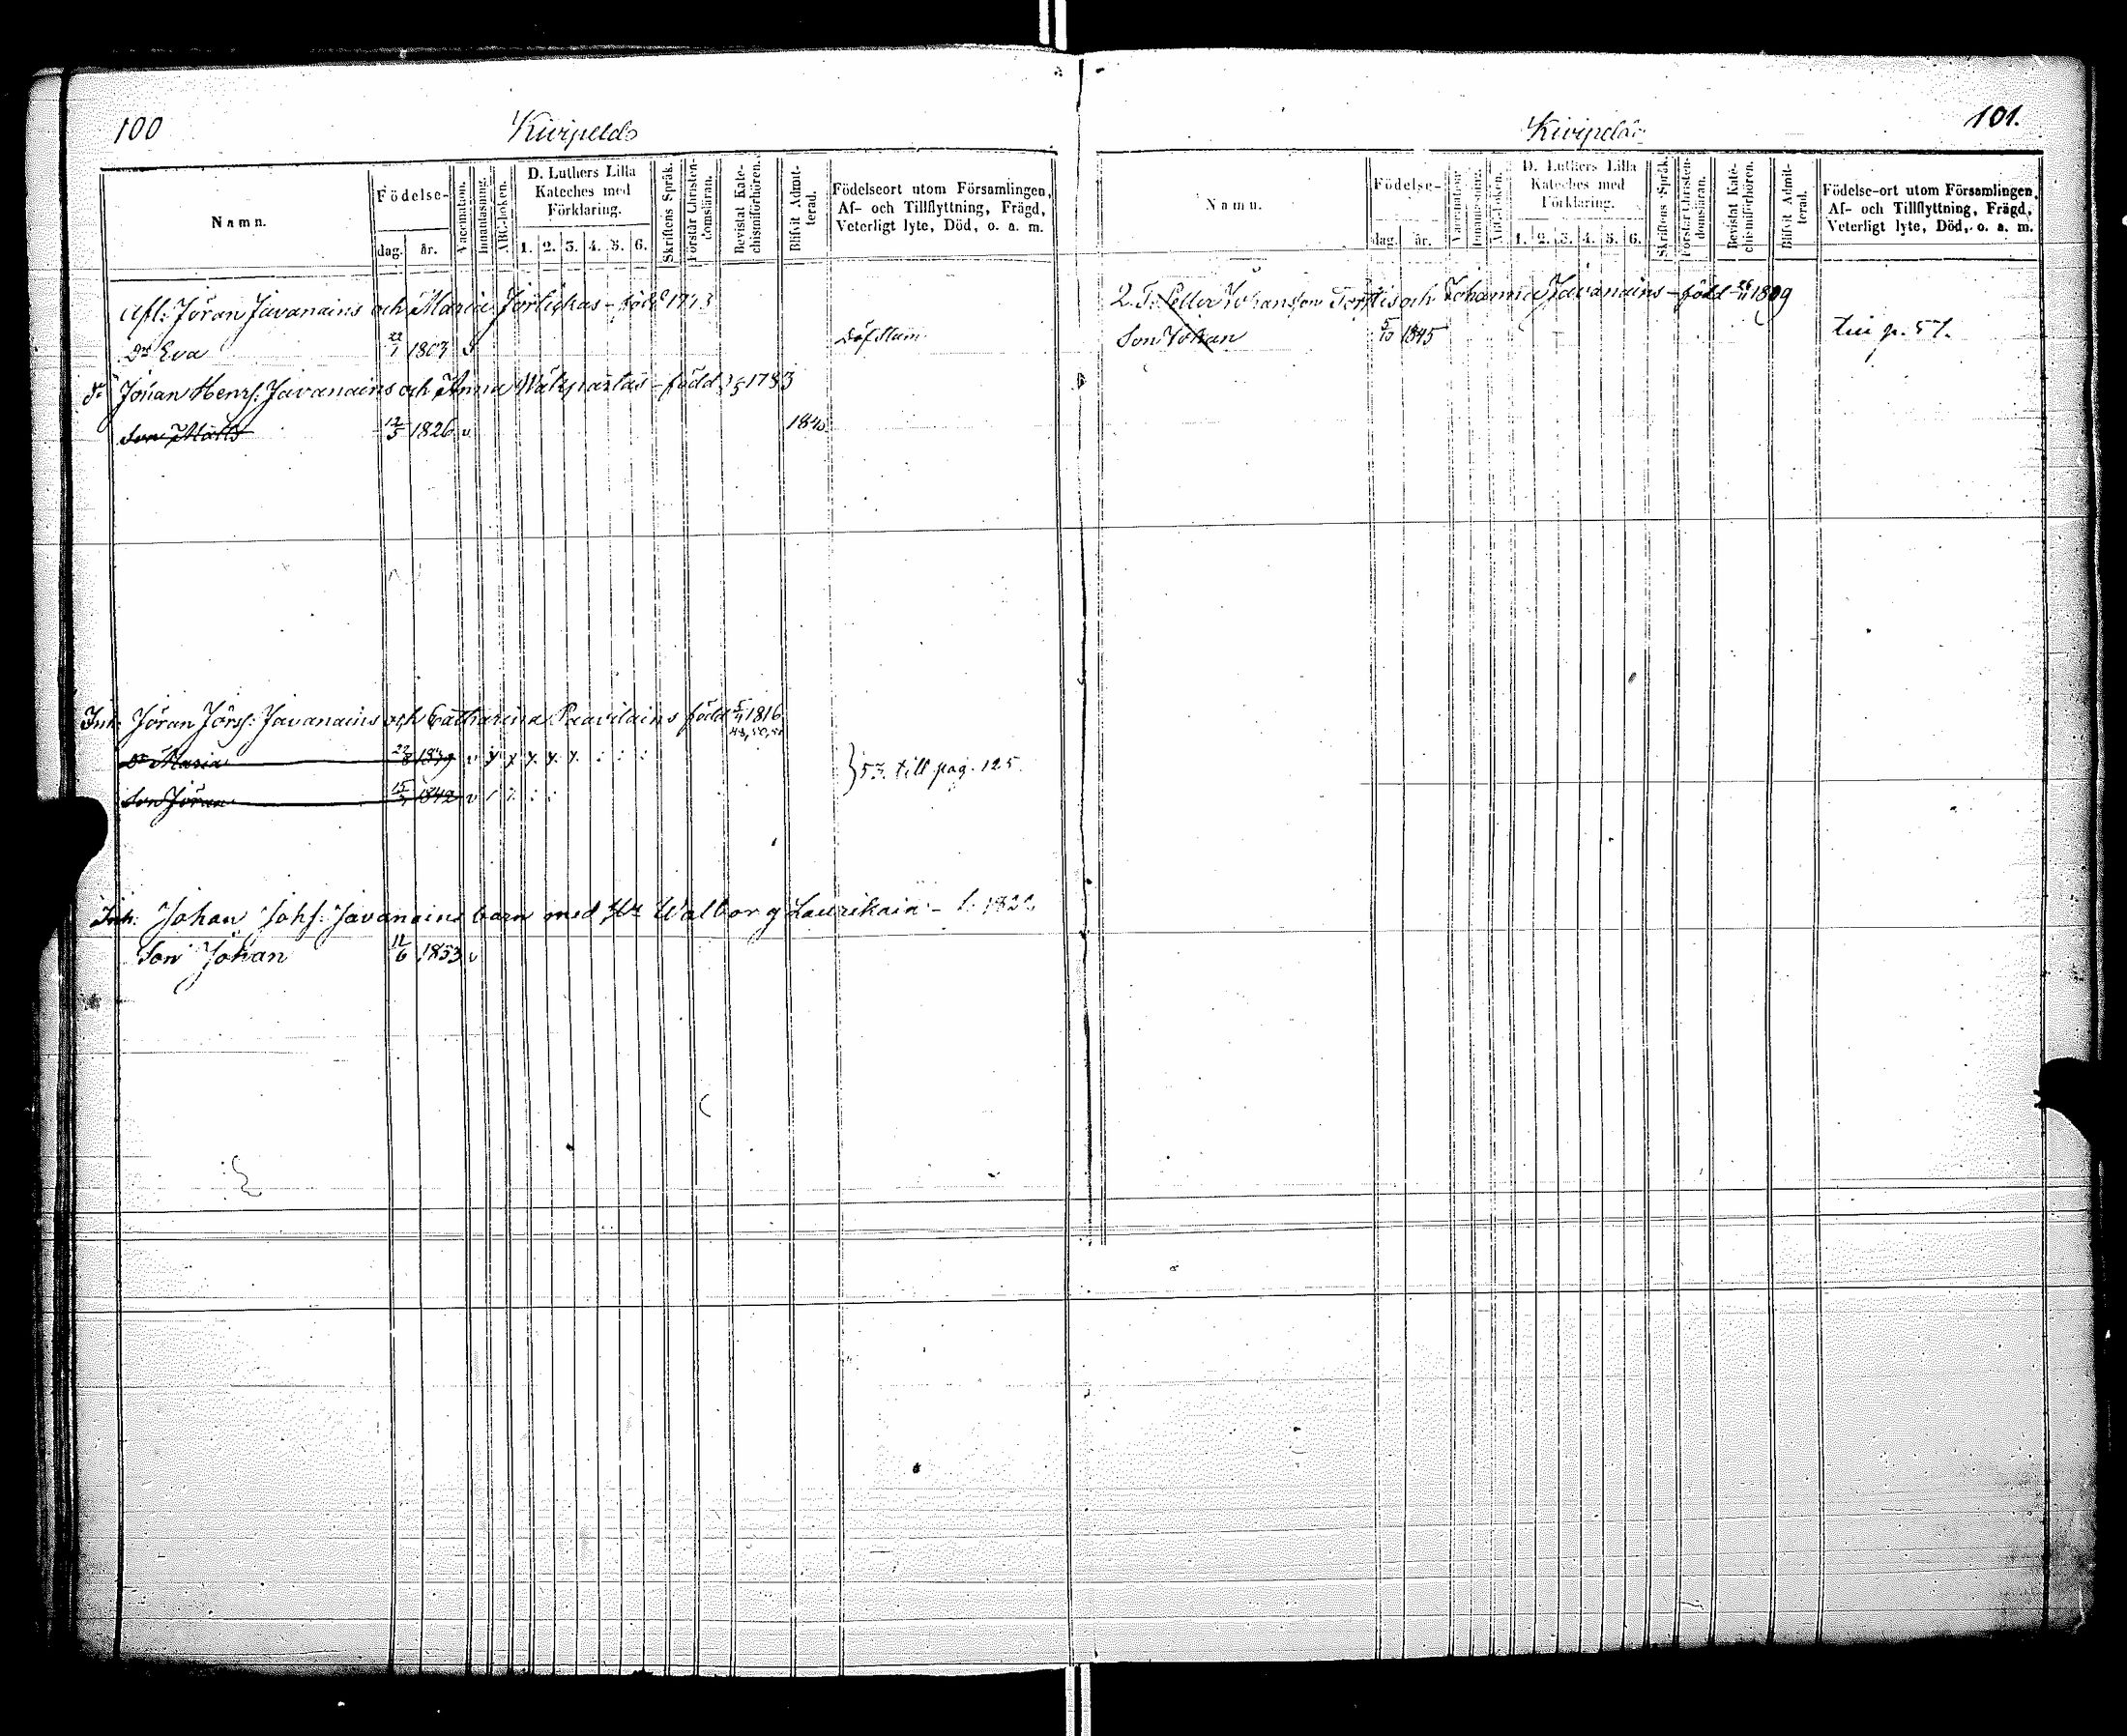 100
Kivipeldo
Namn.
Födelse-
dag. år.
Vaccination.
Innanläsning.
ABC-boken.
D. Luthers Lilla
Kateches med
Förklaring.
1. 2. 3. 4. 5. 6.
Skriftens Språk.
Förstår Christen-
domsläran.
Bevistat Kate-
chismiförhören.
Blifvit Admit-
terad.
Födelseort utom Församlingen,
Af- och Tillflyttning, Frägd,
Veterligt lyte, Död, o. a. m.
Afl: Jöran Javanains och Maria - född 1773
Dr Eva 22/1 1803 v Döfstum
Johan Henrs: Javanains och Anna - född 1783
Son Matts 12/5 1826 v 1840
Inh: Jöran Jörs: Javanains och Catharina Paavilains född 5/11 1816
Dr Maria 1839 v
Son Jöran 15/ 1842 v
53. till pag. 125.
Inh: Johan Johs: Javanains barn med H Walborg Laurikain - 1822
Son Johan 11/6 1853 v
101.
Kivipeldo
Namn.
Födelse-
dag. år.
Vaccination.
Innanläsning.
ABC-boken.
D. Luthers Lilla
Kateches med
Förklaring.
1. 2. 3. 4. 5. 6.
Skriftens Språk.
Förstår Christen-
domsläran.
Bevistat Kate-
chismiförhören.
Blifvit Admit-
terad.
Födelse-ort utom Församlingen,
Af- och Tillflyttning, Frägd,
Veterligt lyte, Död, o. a. m.
2. T: Petter Johansson och Johanna Javanains - född 26/11 1809
Son Johan 5/10 1845 p. 57.